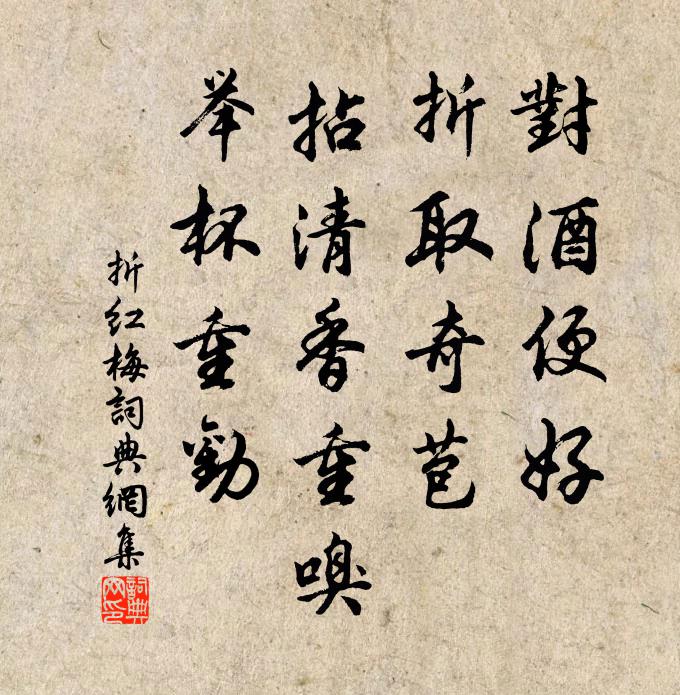 對酒便好
折取奇芭
拈清香重嗅
举杯重勸
折红梅詞典網集
詞典網印